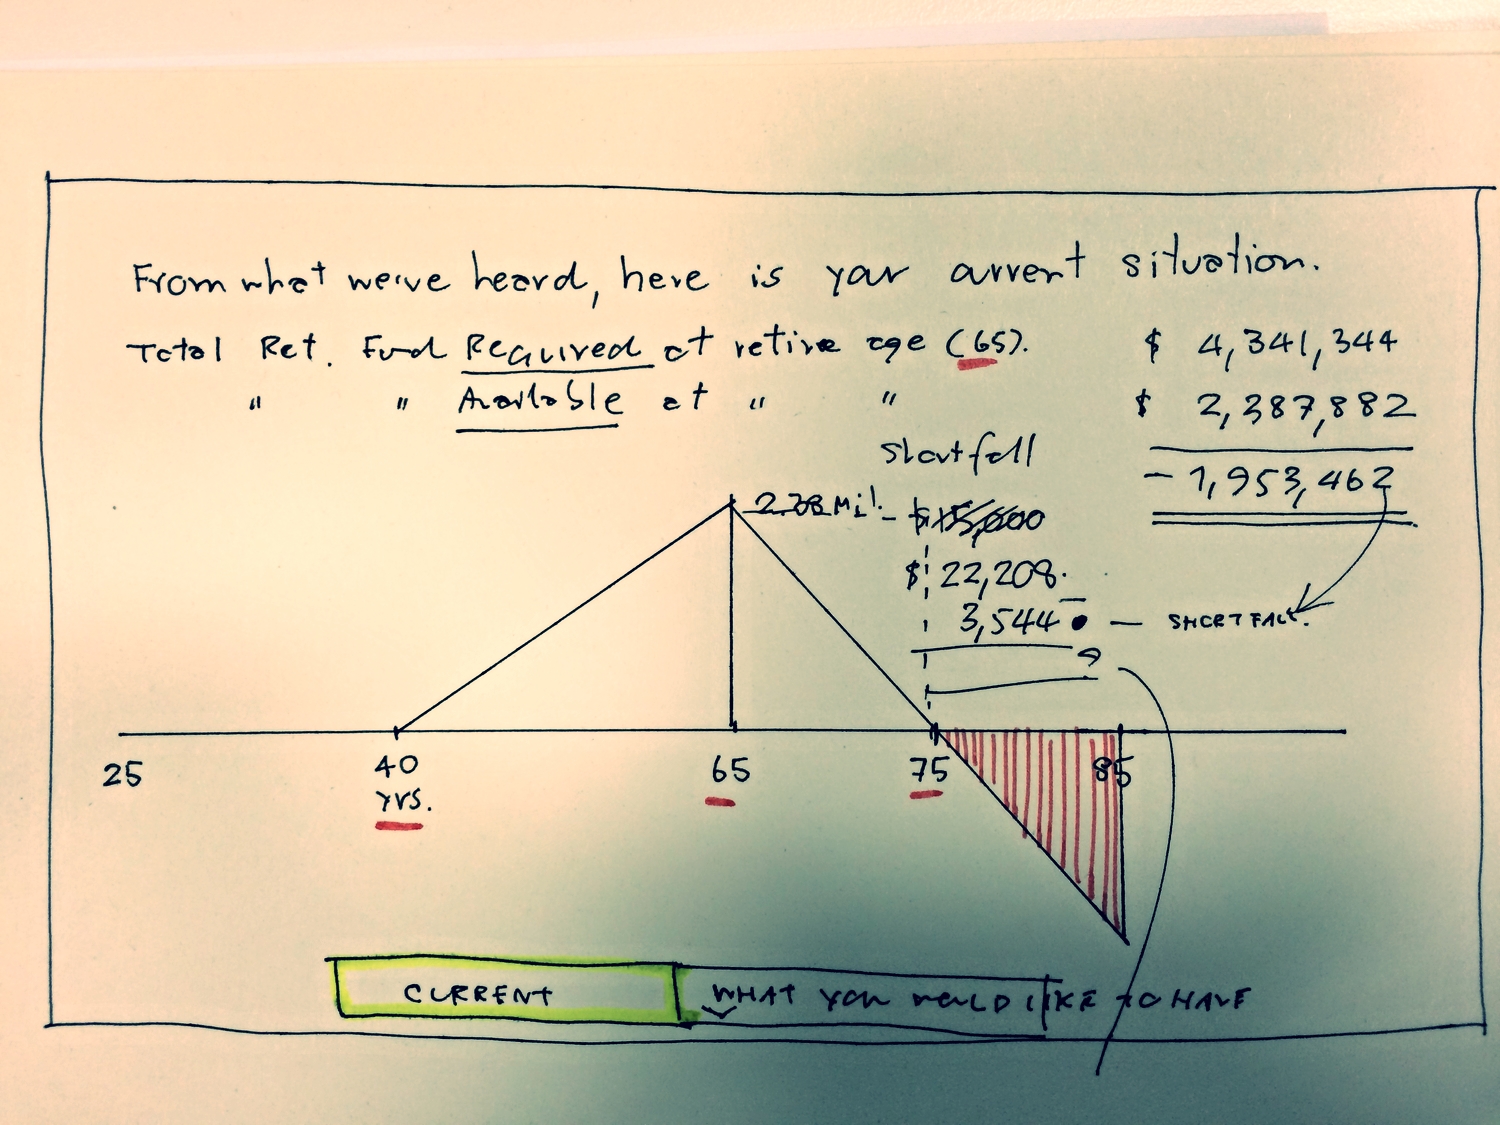 From what we've heard, here is your current situation.
Total Ret. Fund Required at retire age (65). $ 4,341,344
" " Available at " " $ 2,387,882
Shortfall - 1,953,462
2.38 Mil. - $15,000
$ 22,208.
3,544 — SHORTFALL.
25 40 65 75 85
yrs.
CURRENT WHAT YOU WOULD LIKE TO HAVE